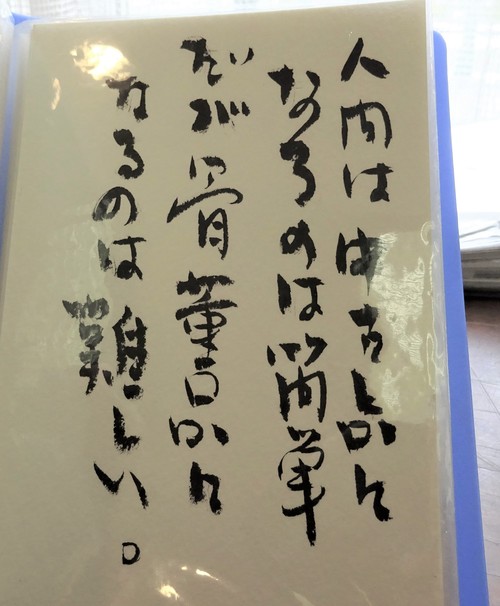 人間は中古品に
なるのは簡単
だが骨董品に
なるのは難しい。